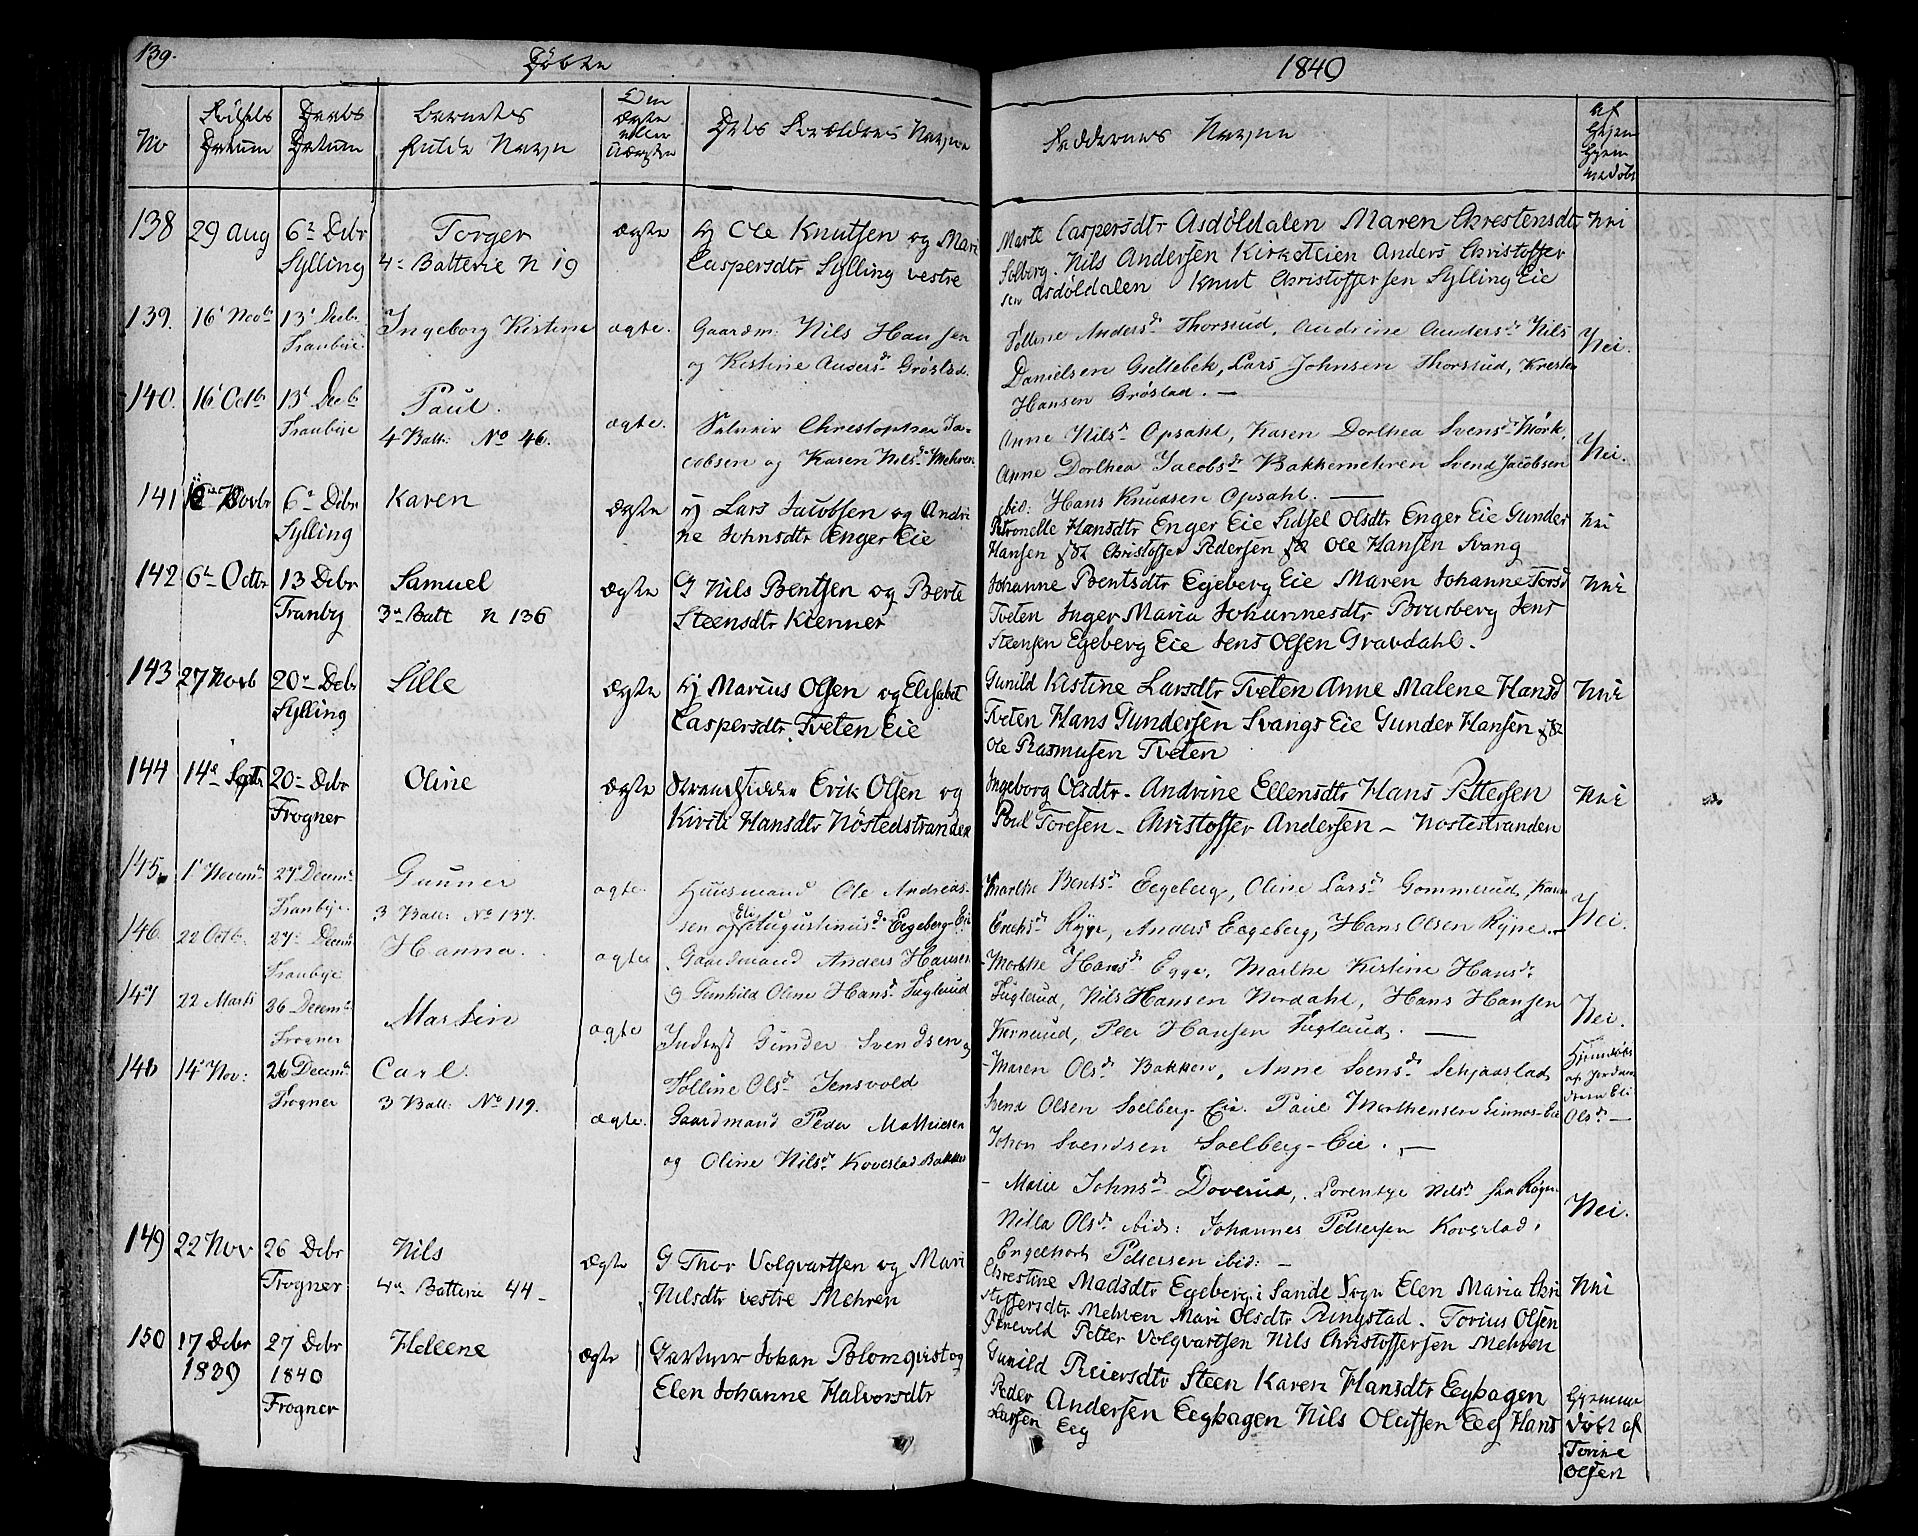 139.
Döbte
1840
No
Födsels Datum
Daabs Datum
Barnets fulde Navn
Om Ægte eller Uægte
Dets Forældres Navne
Faddernes Navne
af hjemmedöbt
138 29 Aug 6te Dcbr Sylling
Torger
4de Batterie N 19
Ægte
Hj Ole Knutsen og Mari
Caspersdtr Sylling vestre
Marte Caspersdtr Asdöldalen Maren Chrestensdtr
Solberg. Nils Andersen Kirksteien Anders Christoffer
sen Asdöldalen Knut Christoffersen Sylling Eie
Nei
139. 16 Novbr 13 Decbr Tranbye
Ingeborg Kistine
ægte.
Gaardm: Nils Hansen
og Kistine Andersd. Grøstad.
Tolline Andersd. Thorsrud, Andrine Andersd. Nils
Danielsen Gullebek, Lars Johnsen Thorsrud, Kresten
Hansen Grøstad. —
Nei.
140. 16 Octb 13 Decb Tranbye
Paul.
4 Batt: No 46.
ægte.
Selveier Christopher Ja-
cobsen og Karen Nilsd. Mehren
Anne Nilsd. Opsahl, Karen Dorthea Svensd. Mörk,
Anne Dorthea Jacobsd. Bakkemehren Svend Jacobsen
ibid: Hans Knudsen Opsahl. —
Nei.
141 Novbr 6te Dcbr Sylling
Karen
Ægte
Hj Lars Jacobsen og Andri
ne Johnsdtr Enger Eie
Petronelle Hansdtr Enger Eie Sidsel Olsdtr Enger Eie Gunder
Hansen Christoffer Pedersen Ole Hansen Svang
Nei
142 6te Octbr 13 Dcbr Tranby
Samuel
3de Batt N 136
Ægte
G Nils Bentsen og Berte
Steensdtr Kienner
Johanne Bentsdtr Egeberg Eie Maren Johanne Torsd
Tveten Inger Maria Johannesdtr Brusberg Jens
Steensen Egeberg Eie Jens Olsen Gravdahl.
Nei
143 27 Novb 20de Dcbr Sylling
Sille
Ægte
Hj Marius Olsen og Elisabet
Caspersdtr. Tveten Eie
Gunild Kistine Larsdtr Tveten Anne Malene Hansd
Tveten Hans Gundersen Svangs Eie Gunder Hansen
Ole Rasmusen Tveten
Nei
144 14de Septbr 20de Dcbr Frogner
Oline
Ægte
Strandsidder Erik Olsen og
Kirsti Hansdtr Nöstedstranden
Ingeborg Olsdtr. Andrine Ellensdtr Hans Pettersen
Poul Toresen – Christoffer Andersen – Nostestranden
Nei
145. 1 Novem. 27 Decem. Tranbye.
Gunner
3 Batt: No 137.
ægte.
Huusmand Ole Andreas-
sen og Eli Augustinusd. Eegeberg-Eie
Marthe Bentsd. Eegeberg, Oline Larsd. Gommerud, Karen
Erichsd. Rype, Anders Eegeberg, Hans Olsen Rype. –
Nei.
146. 22 Octb. 27 Decem. Tranbye
Hanna.
ægte
Gaardmand Anders Hansen
og Gunhild Oline Hansd. Fuglerud
– Marthe Hansd. Egge, Marthe Kistine Hansd.
Fuglerud, Nils Hansen Nordahl, Hans Hansen
Kjernerud, Peer Hansen Fuglerud. —
Nei.
147 22 Marts 26 Decem. Frogner
Martin
ægte
Inderst Gunder Svendsen og
Tolline Olsd. Jensvold
– Maren Olsd. Bakken, Anne Svensd. Schjaastad,
Svend Olsen Soelberg-Eie. Paul Marthensen Linnes-Eie
Johan Svendsen Soelberg-Eie. —
Hjemdöbt
af Jordem
oderen Eli
Olsd. —
148 14 Nov: 26 Decem. Frogner
Carl.
3 Batt: No 119.
ægte.
Gaardmand Peder Mathiesen
og Oline Nilsd. Kovestad Bakken
– Marie Johnsd. Doverud, Lorentze Nilsd.
Nilla Olsd. ibid: Johannes Pettersen Kovestad,
Engelhart Pettersen ibid: —
Nei.
149 22 Nov 26 Dcbr Frogner
Nils
4de Batterie 44 –
Ægte
G Thor Volqvartsen og Mari
Nilsdtr vestre Mehren
Christine Madsdtr Egeberg i Sande Sogn Elen Maria Chri
stoffersdtr Mehren Mari Olsdtr Ringstad. Torius Olsen
Petter Volqvartsen Nils Christoffersen Mehren
Nei
150 17 Dcbr 1839 27 Dcbr 1840 Frogner
Heleene
Ægte
Gartner Johan Blomqvist og
Elen Johanne Halvorsdtr
Gunild Reiersdtr Steen Karen Hansdtr Eeghagen
Peder Andersen Eeghagen Nils Olausen Eeg Hans
Larsen Eeg
Hjemme
döbt af
Torine
Olsen